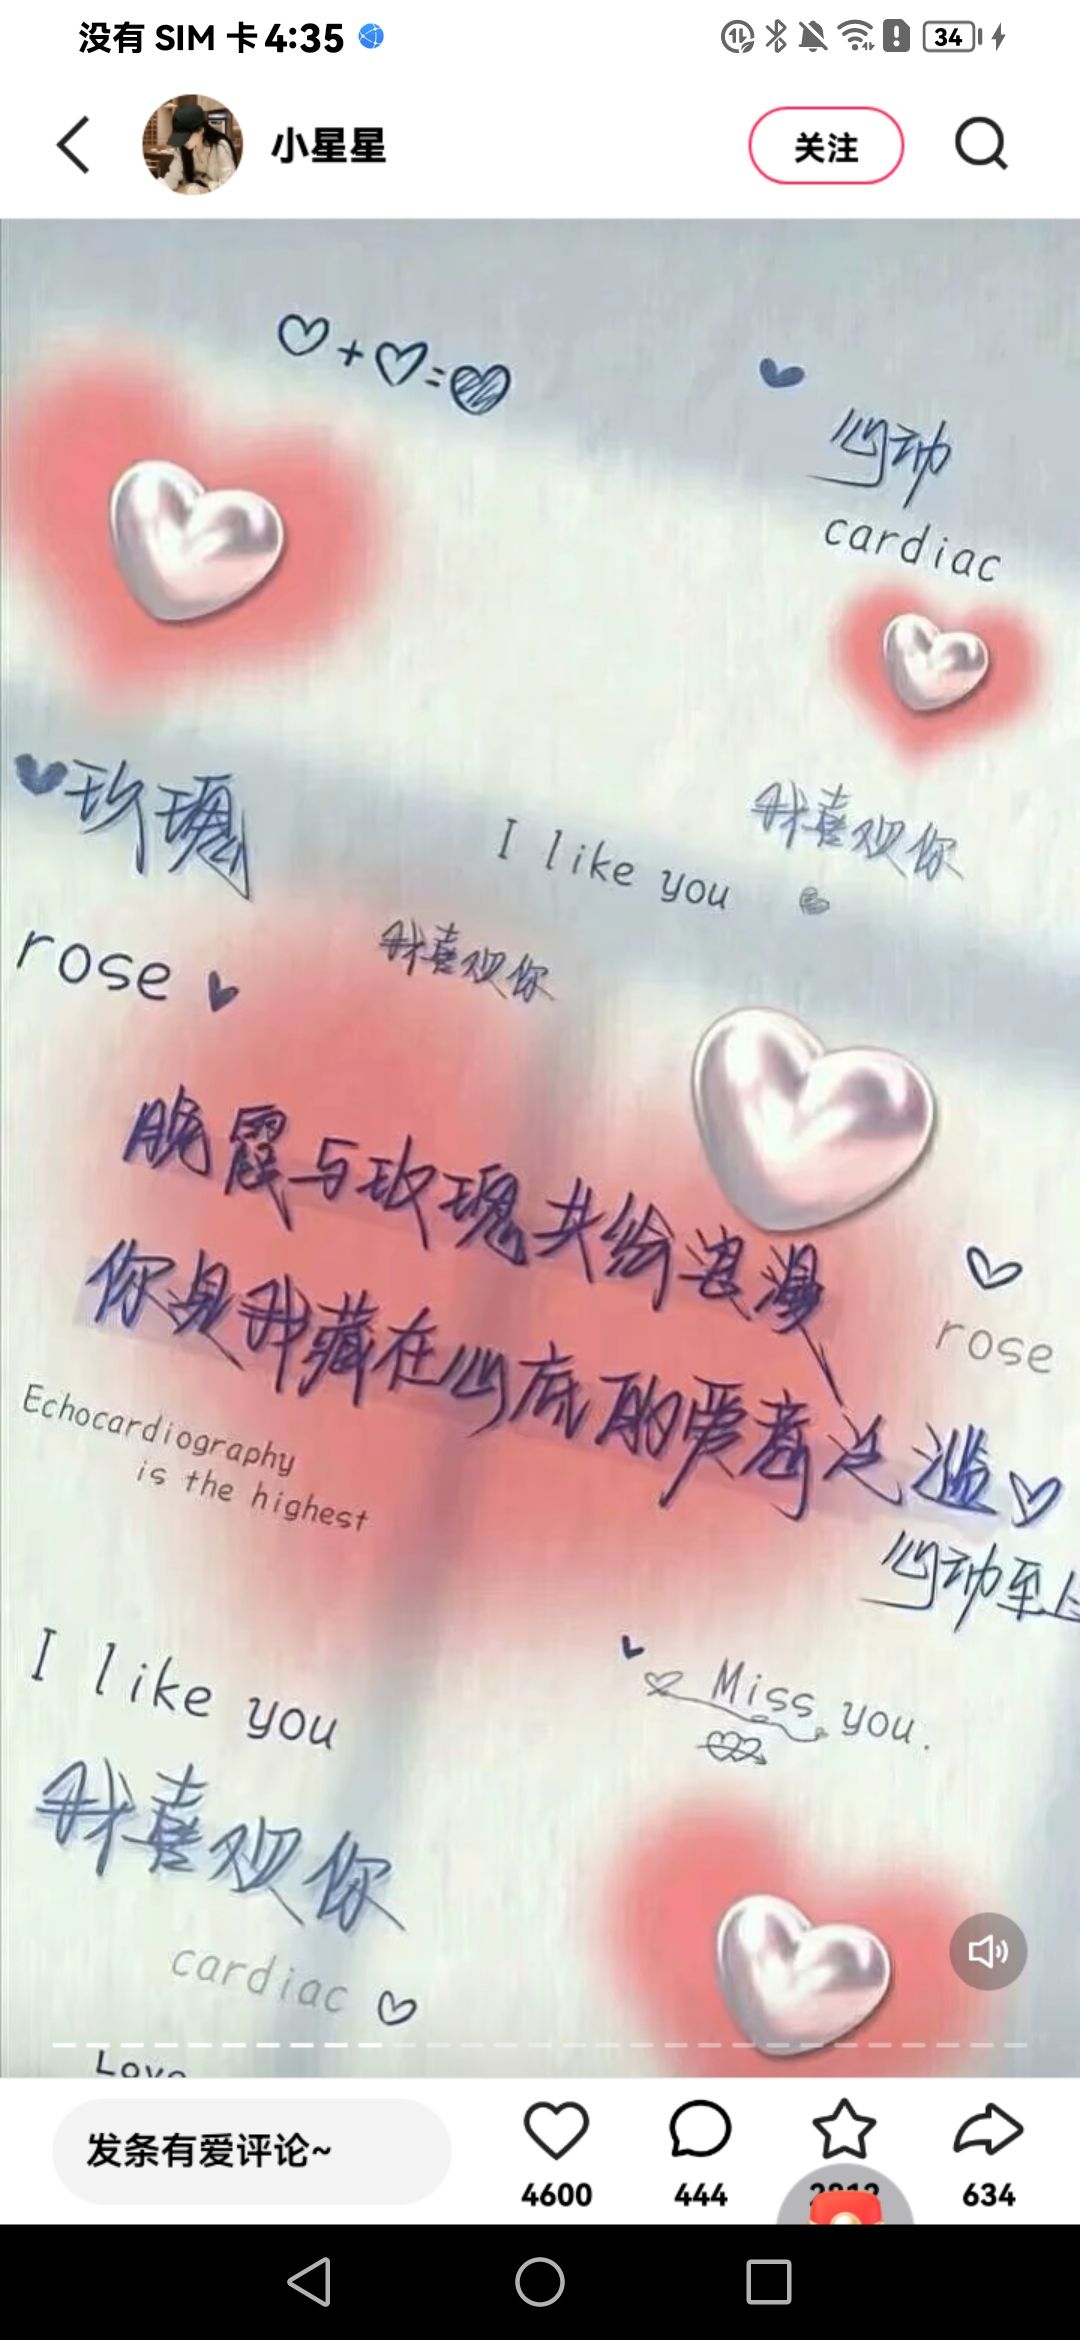 没有 SIM 卡 4:35
34
小星星
关注
心动
cardiac
玫瑰
rose
I like you
我喜欢你
我喜欢你
晚霞与玫瑰共绘浪漫
你是我藏在心底的爱意泛滥
rose
Echocardiography
is the highest
心动至上
I like you
我喜欢你
Miss you.
cardiac
Love
发条有爱评论~
4600
444
634